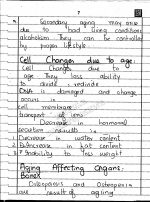 7
Secondary aging may arise
due to bad living conditions
alcoholism. They can be controlled
by proper lifestyle
Cell Changes due to age:
Cell Changes due to
age They loss ability
to divide, redivide
DNA is damaged and change
occurs in
cell membrane
transport of ions
Decrease in hormonal
secretion results in
Decrease in water content
Increase in fat content
Probability to loss weight
Aging Affecting Organs:
Bones
Osteoporosis and Osteopenia
are result of aging